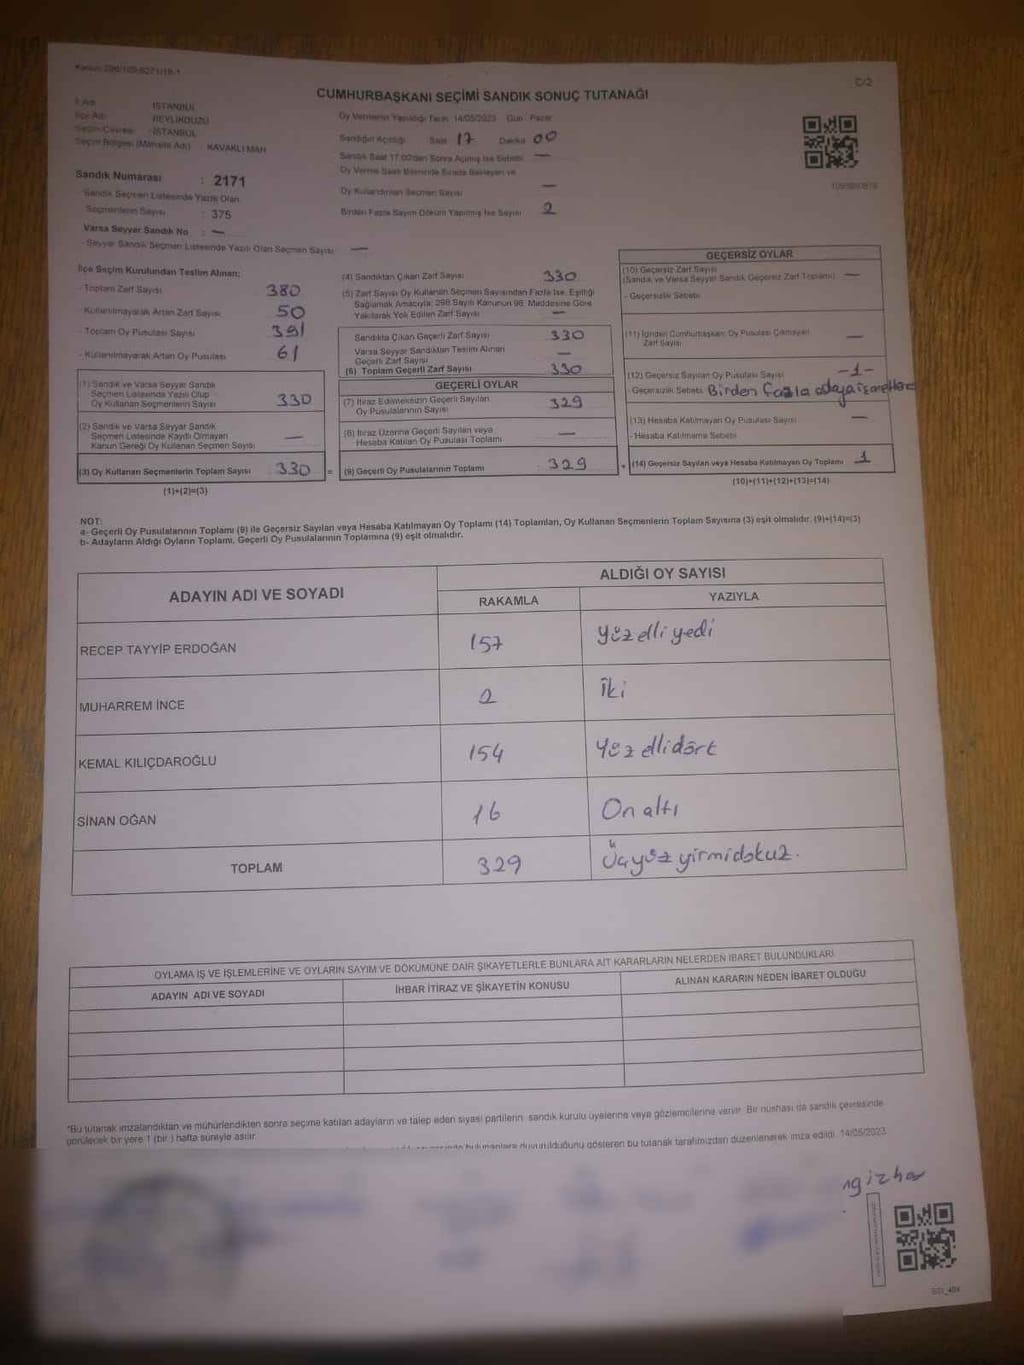 C/2
CUMHURBAŞKANI SEÇİMİ SANDIK SONUÇ TUTANAĞI
İl Adı : İSTANBUL
İlçe Adı : BEYLİKDÜZÜ
Seçim Çevresi : İSTANBUL
Seçim Bölgesi (Mahalle Adı) : KAVAKLI MAH
Sandık Numarası : 2171
Sandık Seçmen Listesinde Yazılı Olan
Seçmenlerin Sayısı : 375
Varsa Seyyar Sandık No : —
Seyyar Sandık Seçmen Listesinde Yazılı Olan Seçmen Sayısı —
Oy Verme­nin Yapıldığı Tarih 14/05/2023 Gün : Pazar
Sandığın Açıldığı Saat 17 Dakika 00
Sandık Saat 17:00'den Sonra Açılmış İse Sebebi —
Oy Verme Saati Bitiminde Sırada Bekleyen ve
Oy Kullandırılan Seçmen Sayısı —
Birden Fazla Sayım Döküm Yapılmış İse Sayısı 2
İlçe Seçim Kurulundan Teslim Alınan;
- Toplam Zarf Sayısı 380
- Kullanılmayarak Artan Zarf Sayısı 50
- Toplam Oy Pusulası Sayısı 391
- Kullanılmayarak Artan Oy Pusulası 61
(1) Sandık ve Varsa Seyyar Sandık
Seçmen Listesinde Yazılı Olup
Oy Kullanan Seçmenlerin Sayısı 330
(2) Sandık ve Varsa Seyyar Sandık
Seçmen Listesinde Kayıtlı Olmayan
Kanun Gereği Oy Kullanan Seçmen Sayısı —
(3) Oy Kullanan Seçmenlerin Toplam Sayısı : 330 =
(1)+(2)=(3)
(4) Sandıktan Çıkan Zarf Sayısı 330
(5) Zarf Sayısı Oy Kullanan Seçmen Sayısından Fazla İse, Eşitliği
Sağlamak Amacıyla; 298 Sayılı Kanunun 98. Maddesine Göre
Yakılarak Yok Edilen Zarf Sayısı —
Sandıkta Çıkan Geçerli Zarf Sayısı 330
Varsa Seyyar Sandıktan Teslim Alınan
Geçerli Zarf Sayısı —
(6) Toplam Geçerli Zarf Sayısı 330
GEÇERLİ OYLAR
(7) İtiraz Edilmeksizin Geçerli Sayılan
Oy Pusulalarının Sayısı 329
(8) İtiraz Üzerine Geçerli Sayılan veya
Hesaba Katılan Oy Pusulası Toplamı —
(9) Geçerli Oy Pusulalarının Toplamı : 329 +
GEÇERSİZ OYLAR
(10) Geçersiz Zarf Sayısı
(Sandık ve Varsa Seyyar Sandık Geçersiz Zarf Toplamı) —
- Geçersizlik Sebebi
(11) İçinden Cumhurbaşkanı Oy Pusulası Çıkmayan
Zarf Sayısı —
(12) Geçersiz Sayılan Oy Pusulası Sayısı -1-
- Geçersizlik Sebebi Birden fazla adaya
(13) Hesaba Katılmayan Oy Pusulası Sayısı —
- Hesaba Katılmama Sebebi
(14) Geçersiz Sayılan veya Hesaba Katılmayan Oy Toplamı 1
(10)+(11)+(12)+(13)=(14)
NOT:
a- Geçerli Oy Pusulalarının Toplamı (9) ile Geçersiz Sayılan veya Hesaba Katılmayan Oy Toplamı (14) Toplamları, Oy Kullanan Seçmenlerin Toplam Sayısına (3) eşit olmalıdır. (9)+(14)=(3)
b- Adayların Aldığı Oyların Toplamı, Geçerli Oy Pusulalarının Toplamına (9) eşit olmalıdır.
ADAYIN ADI VE SOYADI
ALDIĞI OY SAYISI
RAKAMLA YAZIYLA
RECEP TAYYİP ERDOĞAN 157 Yüz elli yedi
MUHARREM İNCE 2 İki
KEMAL KILIÇDAROĞLU 154 Yüz elli dört
SİNAN OĞAN 16 On altı
TOPLAM 329 Üçyüz yirmidokuz.
OYLAMA İŞ VE İŞLEMLERİNE VE OYLARIN SAYIM VE DÖKÜMÜNE DAİR ŞİKAYETLERLE BUNLARA AİT KARARLARIN NELERDEN İBARET BULUNDUKLARI
ADAYIN ADI VE SOYADI İHBAR İTİRAZ VE ŞİKAYETİN KONUSU ALINAN KARARIN NEDEN İBARET OLDUĞU
*Bu tutanak imzalandıktan ve mühürlendikten sonra seçime katılan adayların ve talep eden siyasi partilerin sandık kurulu üyelerine veya gözlemcilerine verilir. Bir nüshası da sandık çevresinde
görülecek bir yere 1 (bir) hafta süreyle asılır.
bulunanlara duyurulduğunu gösteren bu tutanak tarafımızdan düzenlenerek imza edildi. 14/05/2023